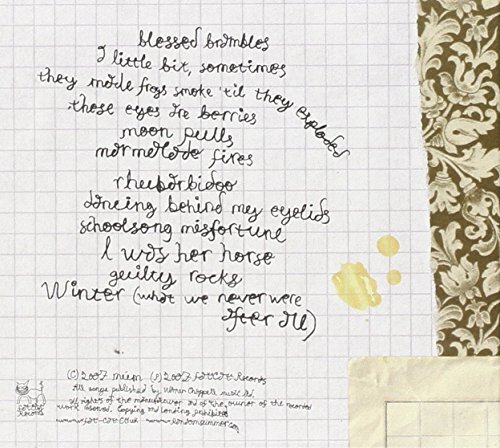 blessed brambles
I little bit, sometimes
they made frogs smoke 'til they exploded
those eyes are berries
moon pulls
marmalade fires
rhubarbidoo
dancing behind my eyelids
schoolsong misfortune
I was her horse
guilty rocks
Winter (what we never were
after all)
(C) 2007 múm (P) 2007 fatcat Records
All songs published by Warner Chappell music Ltd
All rights of the manufacturer and of the owner of the recorded
work reserved. Copying and lending prohibited
www.fat-cat.co.uk
fat cat
records